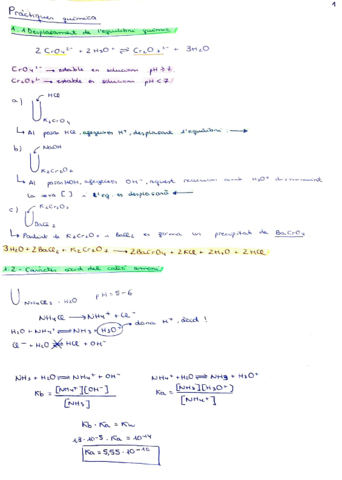 1
Pràctiques química
1.1 Desplaçament de l'equilibri químic
2 CrO4²⁻ + 2H3O⁺ ⇌ Cr2O7²⁻ + 3H2O
CrO4²⁻ → estable en solucions pH≥7
Cr2O7²⁻ → estable en solucions pH<7
a) HCl
K2CrO4
↳ Al posar HCl, afegim H⁺, desplaçant l'equilibri →
b) NaOH
K2Cr2O7
↳ Al posar NaOH, OH⁻, aquest reacciona amb H3O⁺ disminuint
la seva [ ] = l'eq. es desplaça ←
c) K2Cr2O7
BaCl2
↳ Producte de K2Cr2O7 + BaCl2 es forma un precipitat de BaCrO4
3H2O + 2BaCl2 + K2Cr2O7 → 2BaCrO4 + 2KCl + 2H2O + 2HCl
1.2 - Caràcter àcid del catió amoni
NH4Cl · H2O pH = 5-6
NH4Cl → NH4⁺ + Cl⁻
H2O + NH4⁺ ⇌ NH3 + H3O⁺ → dona H⁺, àcid!
Cl⁻ + H2O HCl + OH⁻
NH3 + H2O ⇌ NH4⁺ + OH⁻ NH4⁺ + H2O ⇌ NH3 + H3O⁺
Kb = [NH4⁺][OH⁻] / [NH3] Ka = [NH3][H3O⁺] / [NH4⁺]
Kb · Ka = Kw
1,8·10⁻⁵ · Ka = 10⁻¹⁴
Ka = 5,55 · 10⁻¹⁰